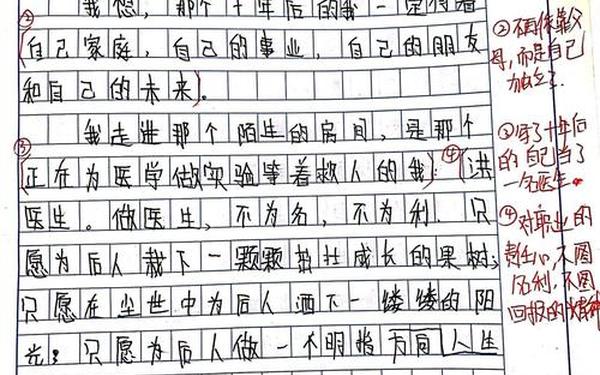 我想，那个十年后的我一定待着
②(自己家庭，自己的事业，自己的朋友
和自己的未来)。
我走进那个陌生的房间，是那个
③(正在为医学做实验等着救人的我)：④(洪
医生。做医生，不为名，不为利，只
愿为后人栽下一颗颗茁壮成长的果树；
只愿在尘世中为后人洒下一缕缕的阳
光；只愿为后人做一个明指方向，人生
②不再依靠父
母，而是自己
独立了.
③写了十年后
的自己当了
一名医生。
④对职业的
责任心，不图
名利，不图
回报的精神